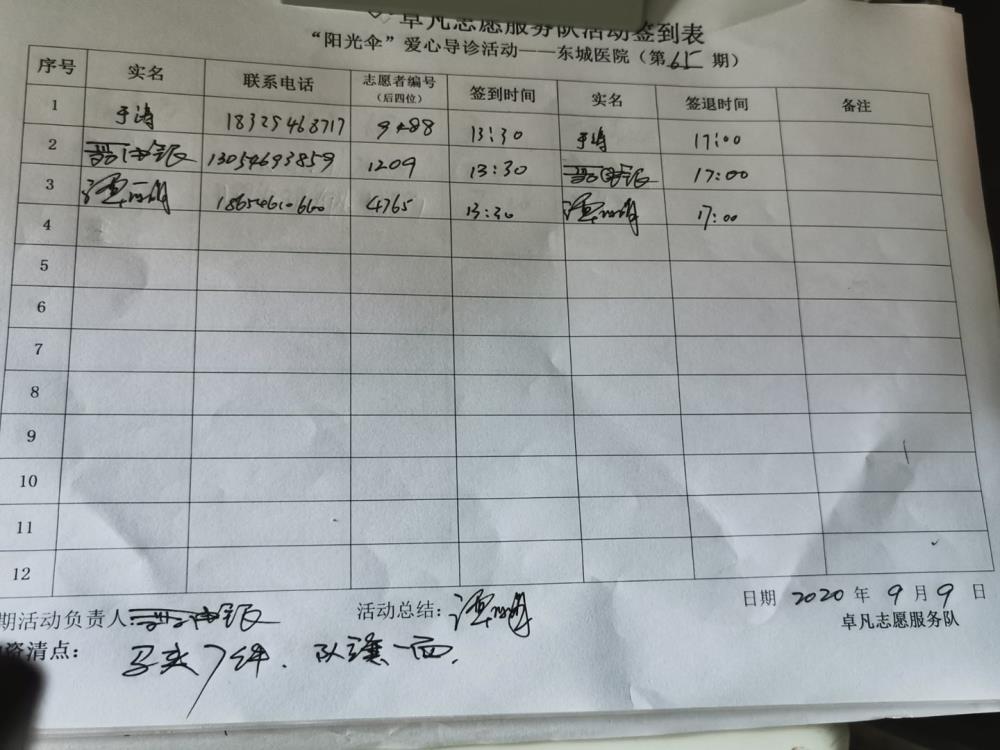 卓凡志愿服务队活动签到表
“阳光伞”爱心导诊活动——东城医院（第65期）
序号 实名 联系电话 志愿者编号（后四位） 签到时间 实名 签退时间 备注
1 于涛 18325468717 9488 13:30 于涛 17:00
2 13054693859 1209 13:30 17:00
3 4765 13:30 17:00
4
5
6
7
8
9
10
11
12
期活动负责人: 活动总结: 日期 2020 年 9 月 9 日
卓凡志愿服务队
资清点: 马夹7件. 队旗一面.